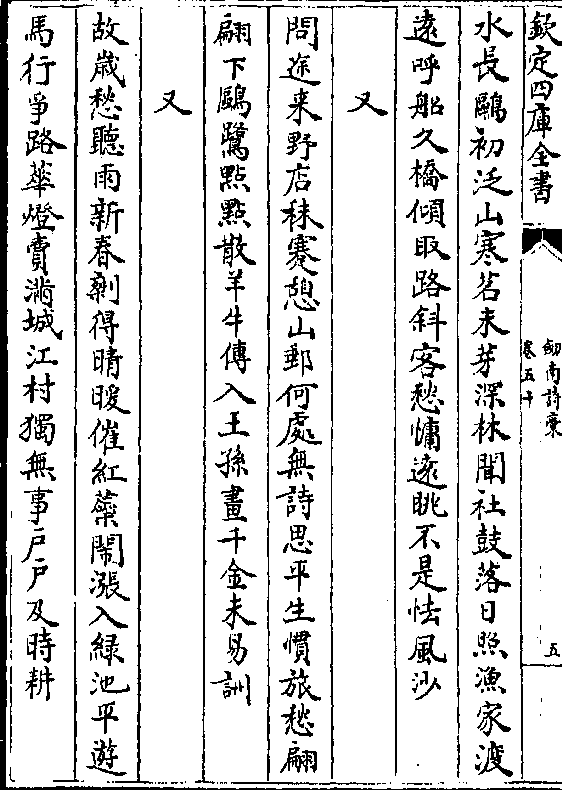 欽定四庫全書
劒南詩稾
卷五十
五
水長鷗初泛山寒茗未芽深林聞社鼓落日照漁家渡
遠呼船久橋傾取路斜客愁慵遠眺不是怯風沙
又
問途来野店秣蹇憩山郵何處無詩思平生慣旅愁翩
翩下鷗鷺點點散羊牛傳入王孫畫千金未易訓
又
故嵗愁聽雨新春剰得晴暖催紅蘂閙漲入緑池平遊
馬行爭路華燈賣滿城江村獨無事戶戶及時耕